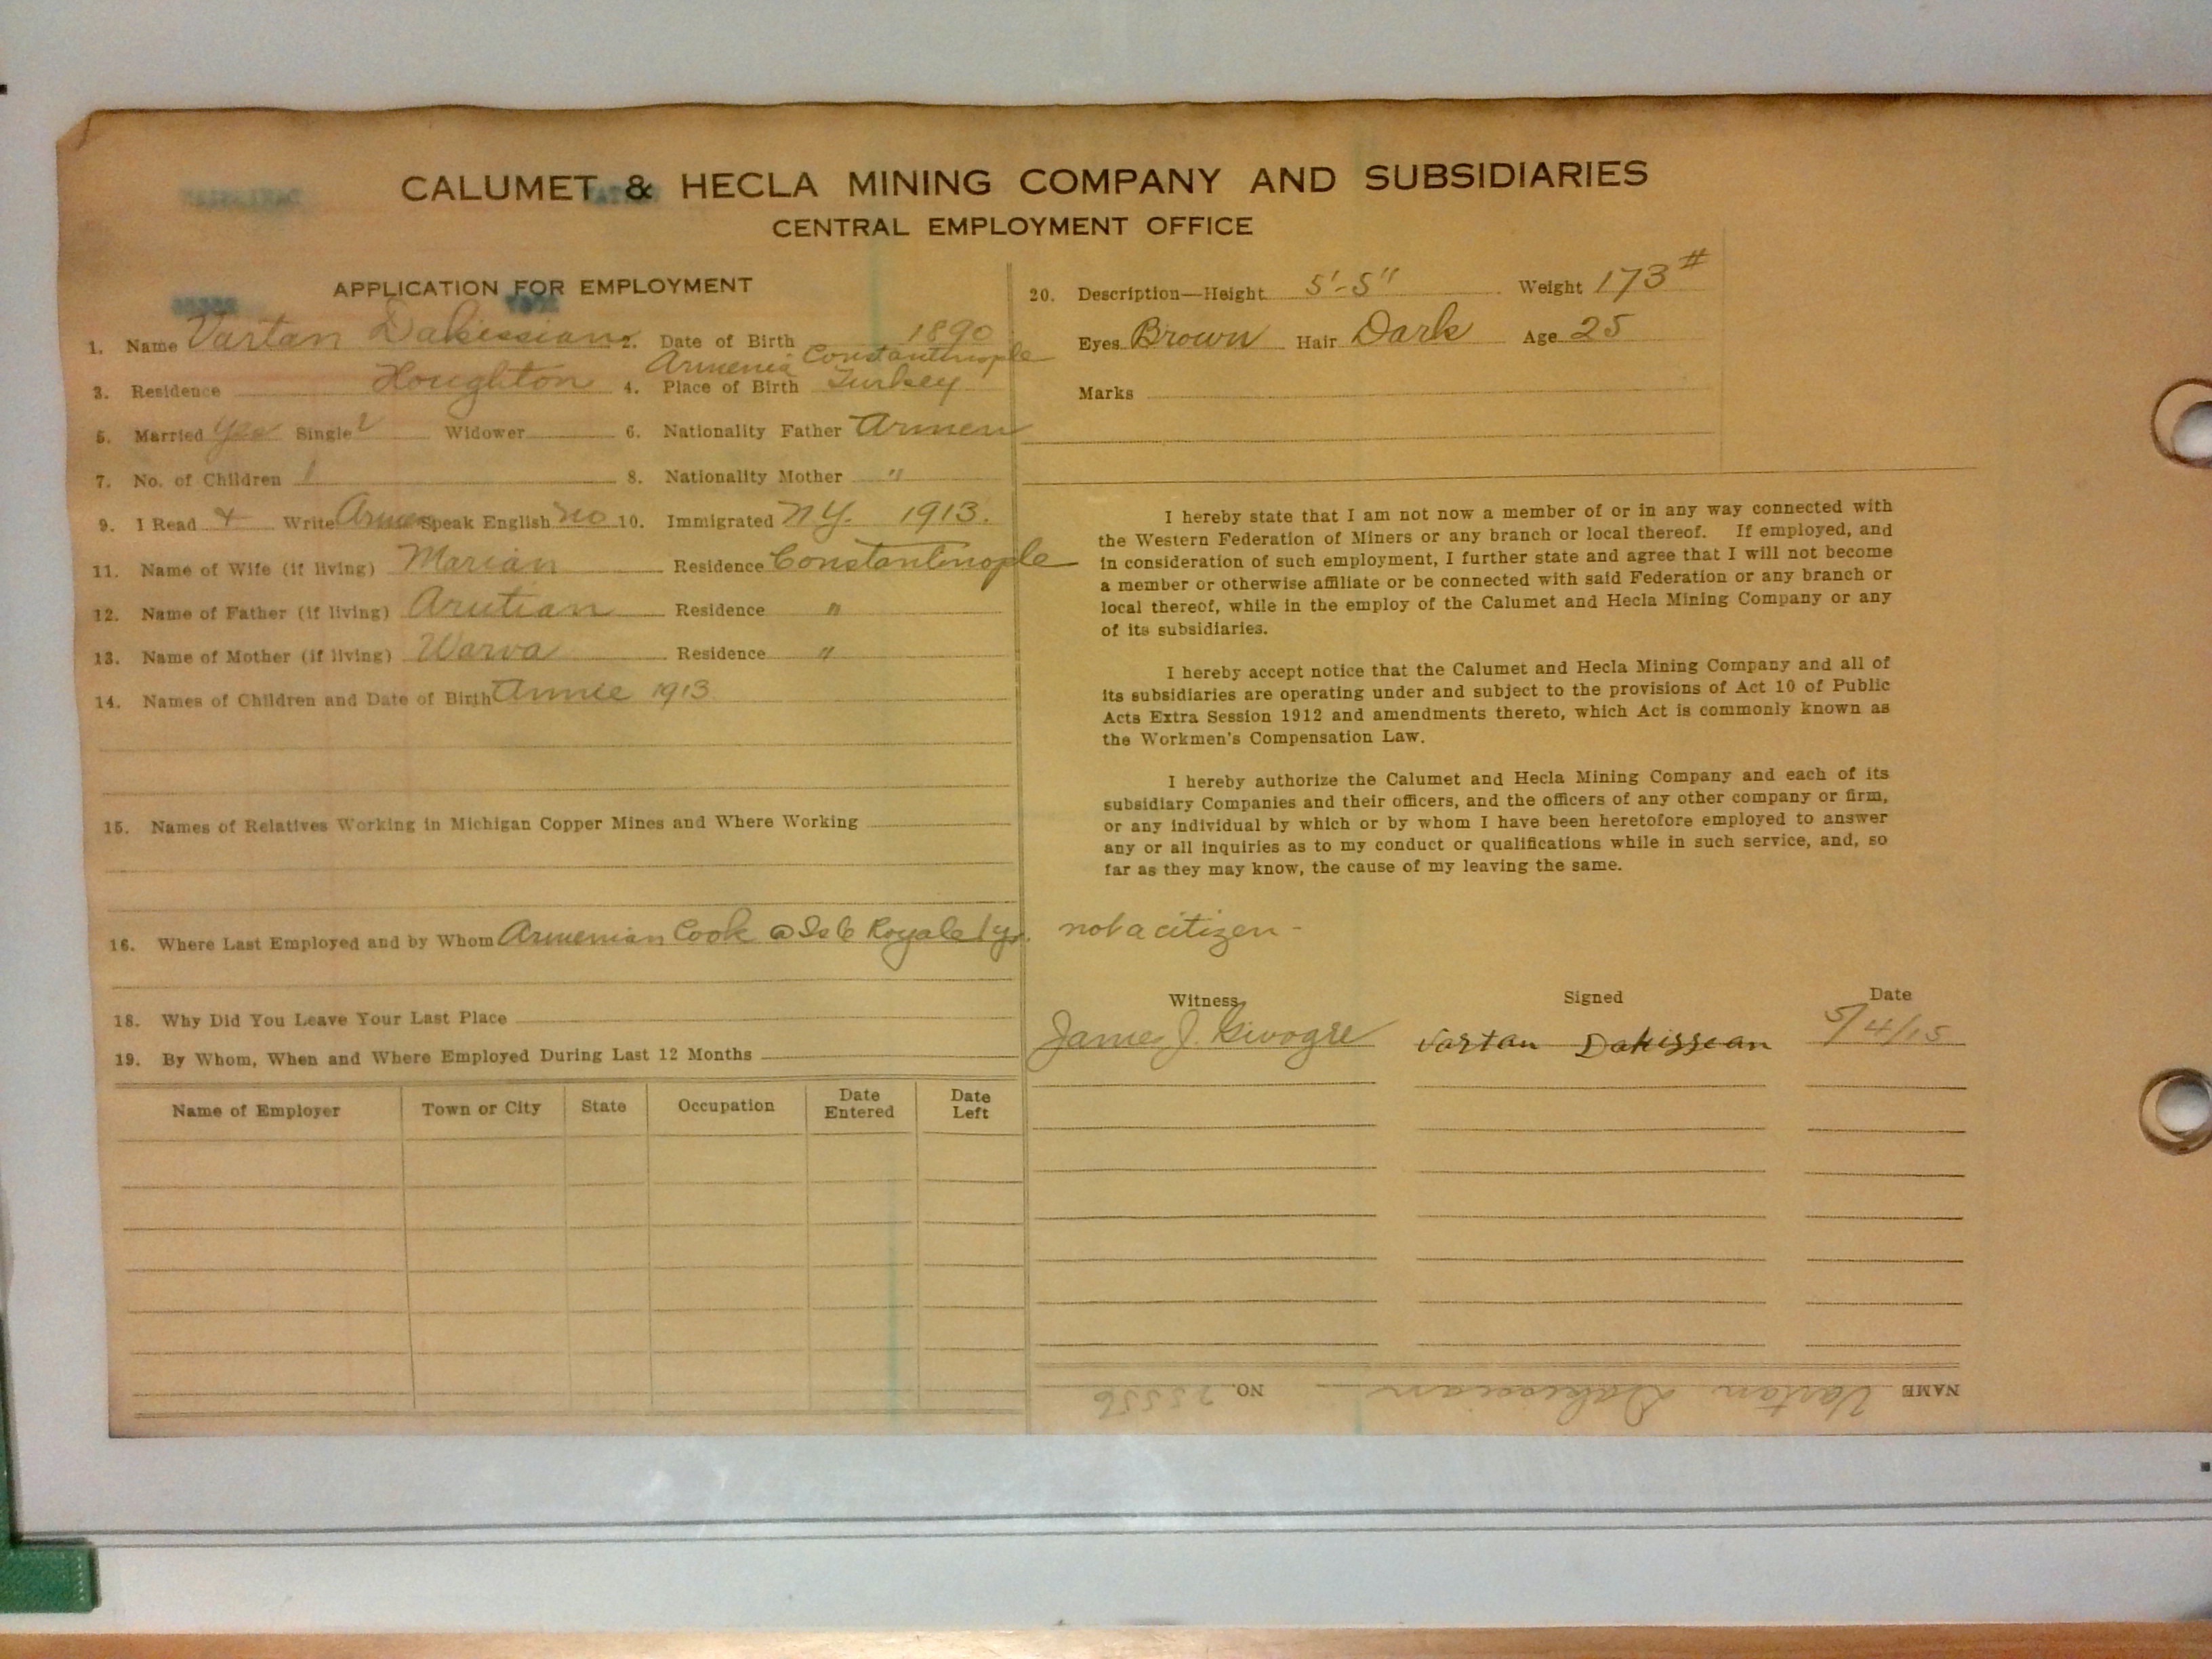 CALUMET & HECLA MINING COMPANY AND SUBSIDIARIES
CENTRAL EMPLOYMENT OFFICE
APPLICATION FOR EMPLOYMENT
1. Name Vartan Dakissian 2. Date of Birth 1890
Armenia Constantinople
3. Residence Houghton 4. Place of Birth Turkey
5. Married Yes Single Widower 6. Nationality Father Armen
7. No. of Children 1 8. Nationality Mother "
9. I Read & Write Armen Speak English no 10. Immigrated N.Y. 1913.
11. Name of Wife (if living) Marian Residence Constantinople
12. Name of Father (if living) Arutian Residence "
13. Name of Mother (if living) Warva Residence "
14. Names of Children and Date of Birth Annie 1913
15. Names of Relatives Working in Michigan Copper Mines and Where Working
16. Where Last Employed and by Whom Armenian Cook @ Isle Royale 1 yr.
18. Why Did You Leave Your Last Place
19. By Whom, When and Where Employed During Last 12 Months
Name of Employer Town or City State Occupation Date Entered Date Left
20. Description—Height 5'-5" Weight 173#
Eyes Brown Hair Dark Age 25
Marks
I hereby state that I am not now a member of or in any way connected with
the Western Federation of Miners or any branch or local thereof. If employed, and
in consideration of such employment, I further state and agree that I will not become
a member or otherwise affiliate or be connected with said Federation or any branch or
local thereof, while in the employ of the Calumet and Hecla Mining Company or any
of its subsidiaries.
I hereby accept notice that the Calumet and Hecla Mining Company and all of
its subsidiaries are operating under and subject to the provisions of Act 10 of Public
Acts Extra Session 1912 and amendments thereto, which Act is commonly known as
the Workmen's Compensation Law.
I hereby authorize the Calumet and Hecla Mining Company and each of its
subsidiary Companies and their officers, and the officers of any other company or firm,
or any individual by which or by whom I have been heretofore employed to answer
any or all inquiries as to my conduct or qualifications while in such service, and, so
far as they may know, the cause of my leaving the same.
not a citizen -
Witness Signed Date
James J. Vartan Dakissean 5/4/15
NAME Vartan Dakissian NO. 25556